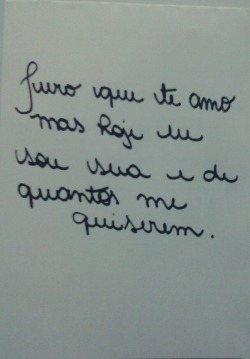 Juro que te amo
mas hoje eu
sou sua e de
quantos me
quiserem.